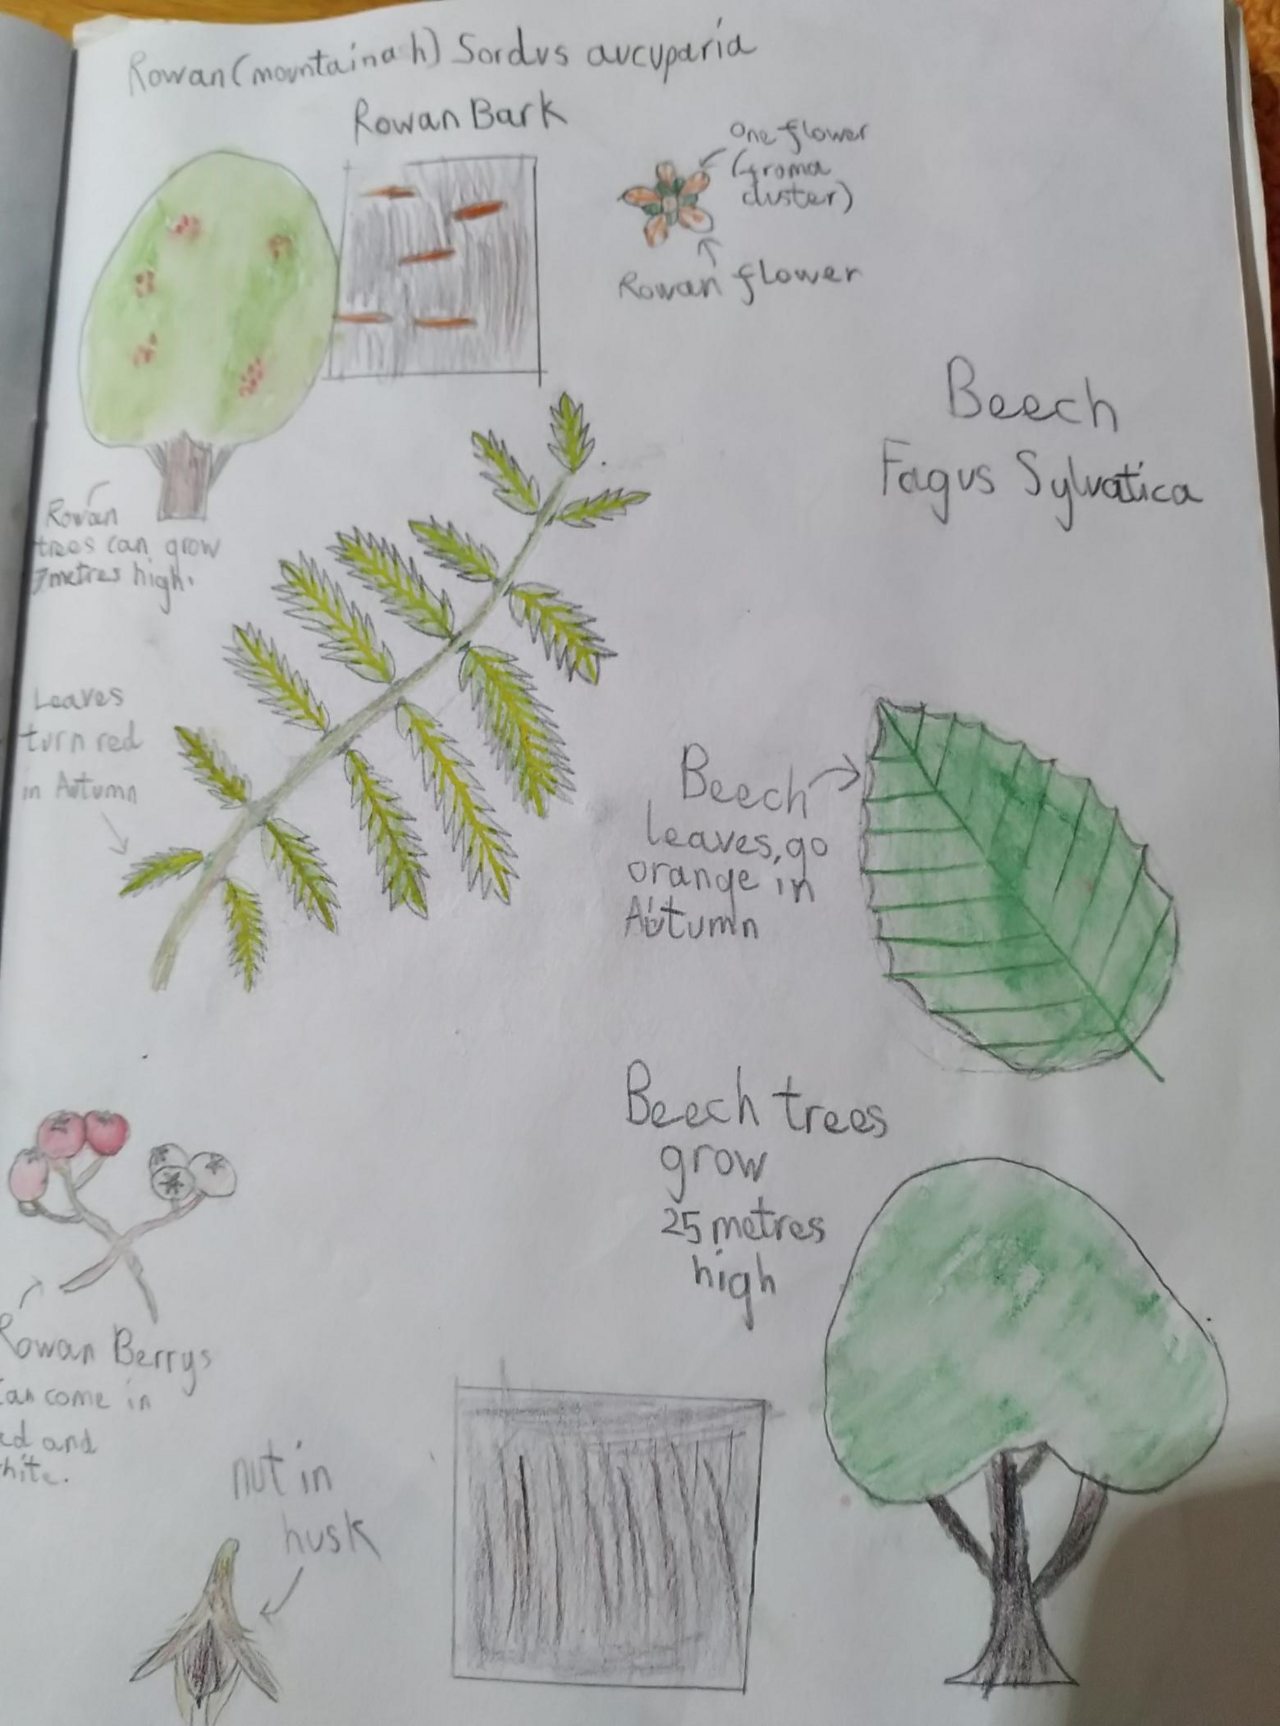 Rowan (mountain a h) Sordus aucuparia
Rowan Bark
One flower
(froma
cluster)
Rowan flower
Beech
Fagus Sylvatica
Rowan
trees can grow
7metres high.
Leaves
turn red
in Autumn
Beech
leaves, go
orange in
Autumn
Beech trees
grow
25 metres
high
Rowan Berrys
can come in
ed and
hite.
nut in
husk